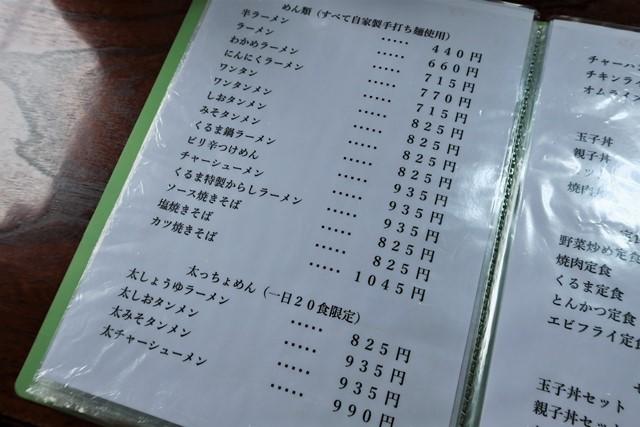 めん類（すべて自家製手打ち麺使用）
半ラーメン ・・・・・ 440円
ラーメン ・・・・・ 660円
わかめラーメン ・・・・・ 715円
にんにくラーメン ・・・・・ 770円
ワンタン ・・・・・ 715円
ワンタンメン ・・・・・ 825円
しおタンメン ・・・・・ 825円
みそタンメン ・・・・・ 825円
くるま鍋ラーメン ・・・・・ 825円
ピリ辛つけめん ・・・・・ 935円
チャーシューメン ・・・・・ 935円
くるま特製からしラーメン ・・・・・ 935円
ソース焼きそば ・・・・・ 825円
塩焼きそば ・・・・・ 825円
カツ焼きそば ・・・・・ 1045円
太っちょめん（一日20食限定）
太しょうゆラーメン ・・・・・ 825円
太しおタンメン ・・・・・ 935円
太みそタンメン ・・・・・ 935円
太チャーシューメン ・・・・・ 990円
チャーハン
チキンライ
オムライス
玉子丼
親子丼
焼肉丼
野菜炒め定食
焼肉定食
くるま定食
とんかつ定食
エビフライ定食
玉子丼セット
親子丼セット